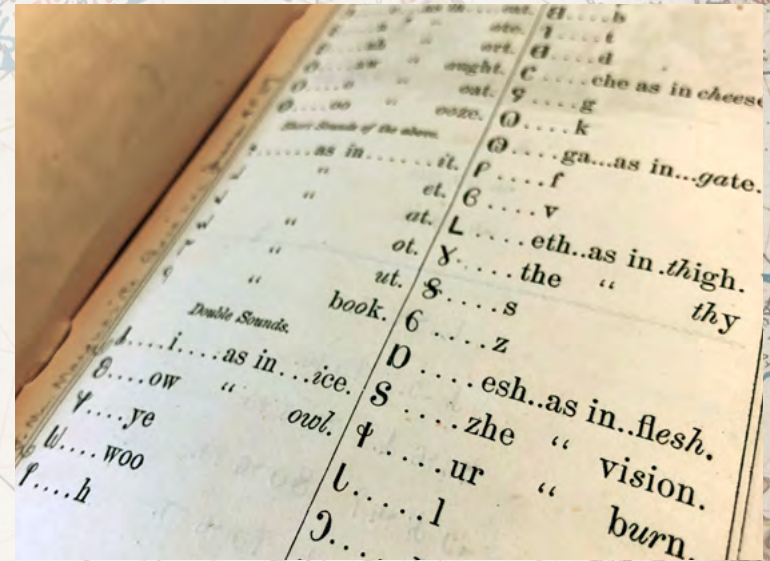 ate.
𐐂....ah “ art.
𐐃....aw “ aught.
𐐄....o “ oat.
𐐅....oo “ ooze.
Short Sounds of the above.
as in......it.
“ et.
“ at.
“ ot.
“ ut.
“ book.
Double Sounds.
𐐌....i....as in...ice.
𐐍....ow “ owl.
𐐏....ye
𐐎....woo
𐐐....h
𐐒....b
𐐓....t
𐐔....d
𐐕....che as in cheese
𐐖....g
𐐗....k
𐐘....ga...as in...gate.
𐐙....f
𐐚....v
𐐛....eth..as in.thigh.
𐐜....the “ thy
𐐝....s
𐐞....z
𐐟....esh..as in..flesh.
𐐠....zhe “ vision.
𐐡....ur “ burn.
𐐢.....l
𐐣...